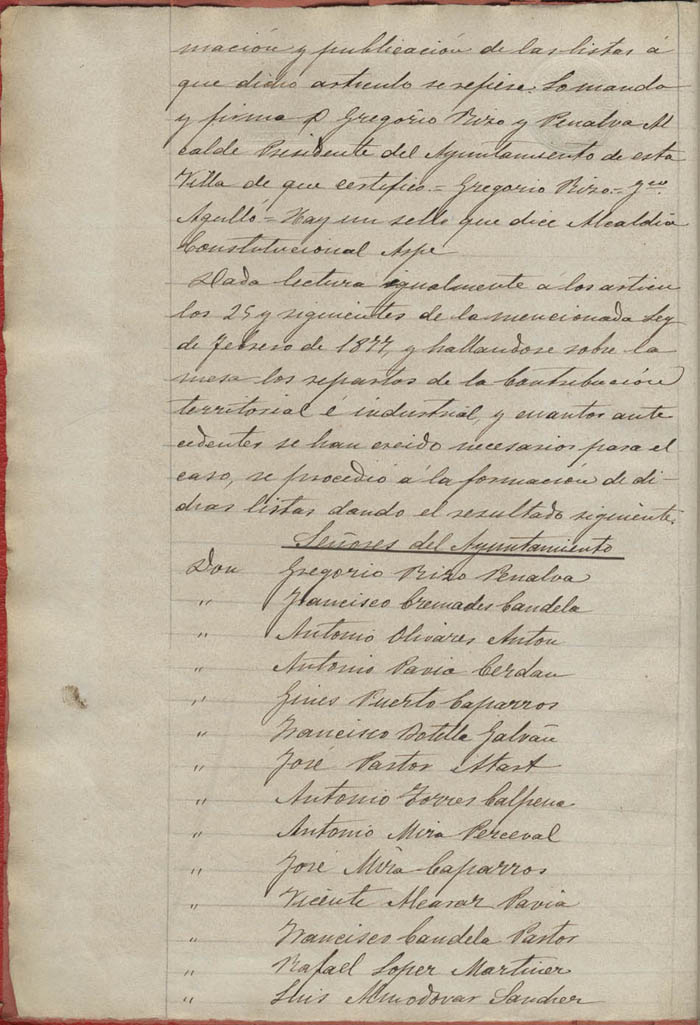 mación y publicación de las listas á
que dicho artículo se refiere. Lo manda
y firma D Gregorio Rizo y Penalva Al
calde Presidente del Ayuntamiento de esta
Villa de que certifico.= Gregorio Rizo.=
Agulló= Hay un sello que dice Alcaldia
Constitucional Aspe
Dada lectura igualmente á los artícu
los 25 y siguientes de la mencionada Ley
de Febrero de 1877, y hallandose sobre la
mesa los repartos de la Contribución
territorial é industrial, y cuantos ante
cedentes se han creido necesarios para el
caso, se procedió á la formación de di-
chas listas dando el resultado siguiente.
Señores del Ayuntamiento
Don Gregorio Rizo Penalva
" Francisco Cremades Candela
" Antonio Olivares Anton
" Antonio Pavia Cerdan
" Gines Puerto Caparros
" Francisco Botella Galvañ
" José Pastor
" Antonio Torres Calpena
" Antonio Mira Perceval
" José Mira Caparros
" Vicente Alcaraz Pavia
" Francisco Candela Pastor
" Rafael Lopez Martinez
" Luis Almodovar Sanchez